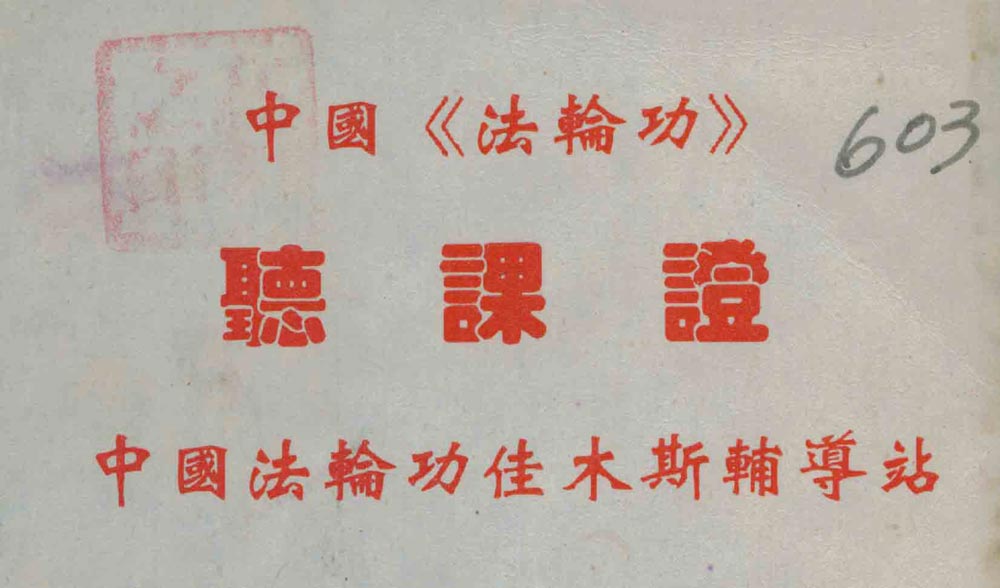 中國《法輪功》
603
聽課證
中國法輪功佳木斯輔導站